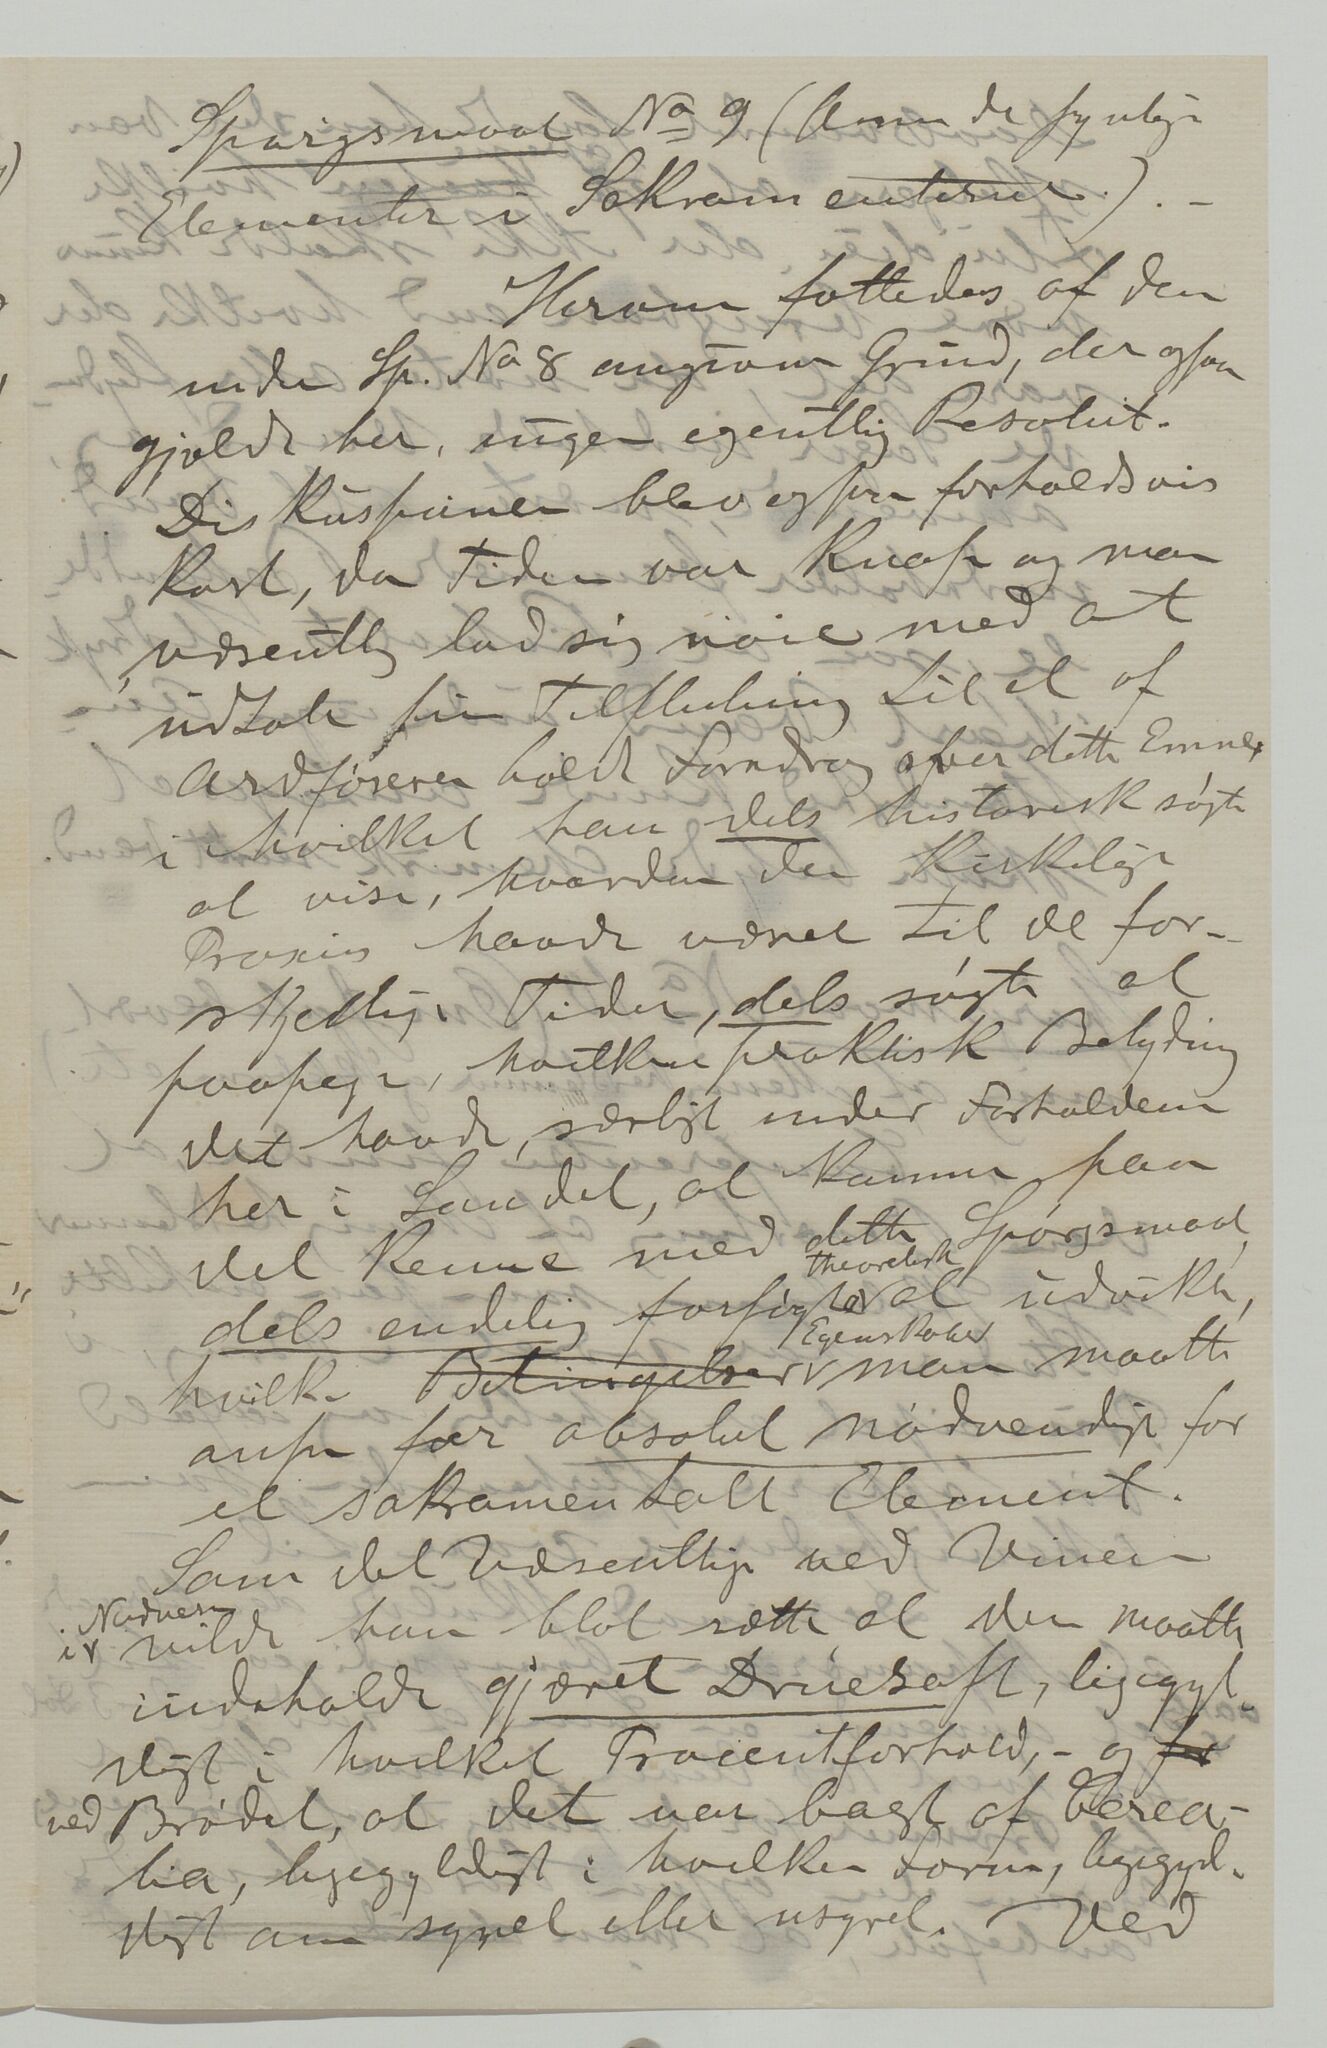 Spørgsmaal No 9 (Om de synlige
Elementer i Sakramenterne). -
Herom fattedes af den
under Sp. No 8 angivne Grund, der ogsaa
gjældt her, ingen egentlig Resolut.
Diskussionen blev ogsaa forholdsvis
kort, da Tiden var knap og man
væsentlig lod sig nøie med at
udtale sin Tilslutning til et af
Ordføreren holdt Foredrag over dette Emne,
i hvilket han dels historisk søgte
at vise, hvordan den kirkelige
Praxis havde været til de for-
skjellige Tider, dels søgte at
paapege, hvilken praktisk Betydning
det havde, særligt under Forholdene
her i Landet, at komme paa
det Rene med dette Spørgsmaal,
theoretisk
dels endelig forsøgte at udvikle,
Egenskaber
hvilke Betingelser man maatte
anse for absolut nødvendige for
et sakramentalt Element.
Som det Væsentlige ved Vinen
Nadveren
i vilde han blot sætte at den maatte
indeholde gjæret Druesaft, ligegyl-
digt i hvilket Procentforhold, - og for
ved Brødet, at det var bagt af Cerea-
lia, ligegyldigt i hvilken Form, ligegyl-
digt om syret eller usyret. Ved